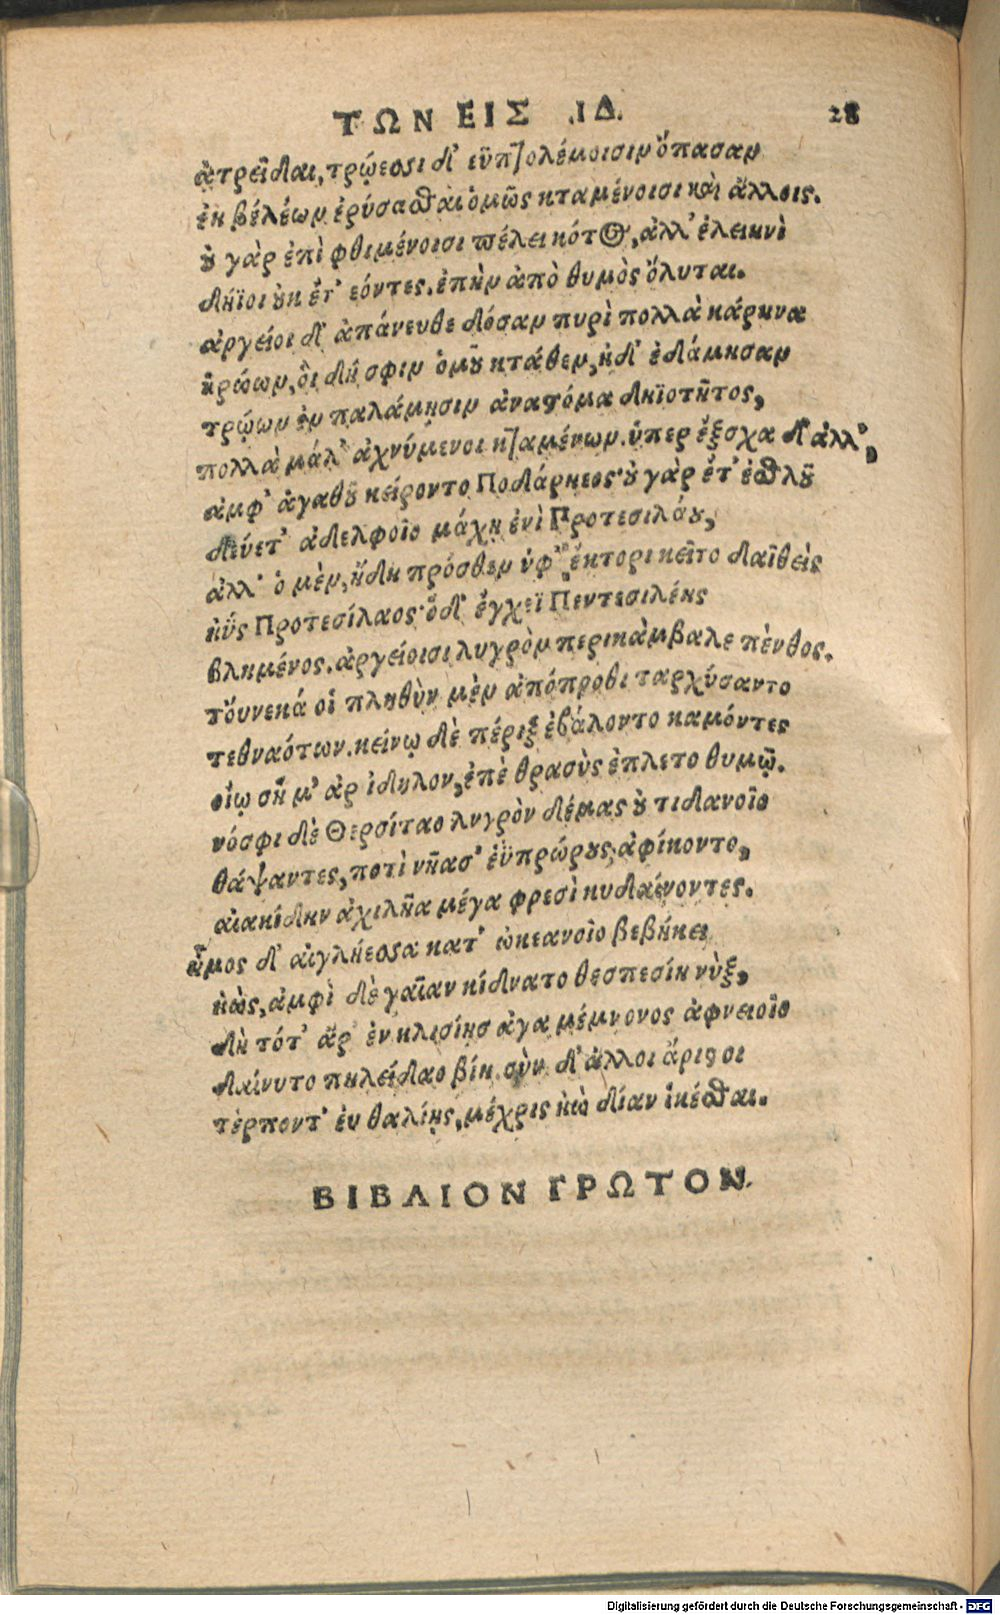 ΤΩΝ ΕΙΣ ΙΔ. 28
ἀτρεῖδαι, τρώεσσι δ' εὐπτολέμοισιν ὄπασαν
ἐκ βελέων ἐρύσασθαι ὁμῶς κταμένοισι καὶ ἄλλοις.
οὐ γὰρ ἐπὶ φθιμένοισι πέλει κότος, ἀλλ' ἐλεεινὶ
δήϊοι οὐκ ἔτ' εόντες. ἐπὴν ἀπὸ θυμὸς ὄληται.
ἀργείοι δ' ἀπάνευθε δόσαν πυρὶ πολλὰ κάρηνα
ἡρώων, οἳ δή σφιν ὁμοῦ κτάθεν, ἠδ' ἐδάμησαν
τρώων ἐν παλάμῃσιν ἀνατόμα δηϊοτῆτος,
πολλὰ μάλ' ἀχνύμενοι κταμένων. ὑπερ ἔξοχα δ' ἀλλ',
ἀμφ' ἀγαθοῦ κείροντο Ποδάρκεος· οὐ γὰρ ἔτ' ἐσθλοῦ
δεύετ' ἀδελφοῖο μάχῃ ἐνὶ Προτεσιλάου,
ἀλλ' ὁ μὲν, ἤδη πρόσθεν ὑφ' ἕκτορι κεῖτο δαϊθεὶς
ἠΰς Προτεσίλαος· ὃ δ' ἔγχεϊ Πεντεσιλέης
βλημένος. ἀργείοισι λυγρὸν περικάμβαλε πένθος.
τοὔνεκά οἱ πληθὺν μὲν ἀπόπροθι ταρχύσαντο
τεθναότων. κείνῳ δὲ πέριξ ἐβάλοντο καμόντες
οἴῳ σῆμ' ἀρίδηλον, ἐπὲ θρασὺς ἐπλετο θυμῷ.
νόσφι δὲ Θερσίταο λυγρὸν δέμας οὐτιδανοῖο
θάψαντες, ποτὶ νῆας' ἐϋπρώρους, ἀφίκοντο,
αἰακίδην ἀχιλῆα μέγα φρεσὶ κυδαίνοντες.
ἦμος δ' αἰγλήεσσα κατ' ὠκεανοῖο βεβήκει
ἠὼς, ἀμφὶ δὲ γαῖαν κίδνατο θεσπεσίη νὺξ,
δὴ τότ' ἄρ' ἐν κλισίῃσ ἀγα μέμνονος ἀφνειοῖο
δαίνυτο πηλείδαο βίη. σὺν δ' ἄλλοι ἄριστοι
τέρποντ' ἐν θαλίῃς, μέχρις ἠῶ δῖαν ἱκέσθαι.
ΒΙΒΛΙΟΝ ΓΡΩΤΟΝ.
Digitalisierung gefördert durch die Deutsche Forschungsgemeinschaft - DFG